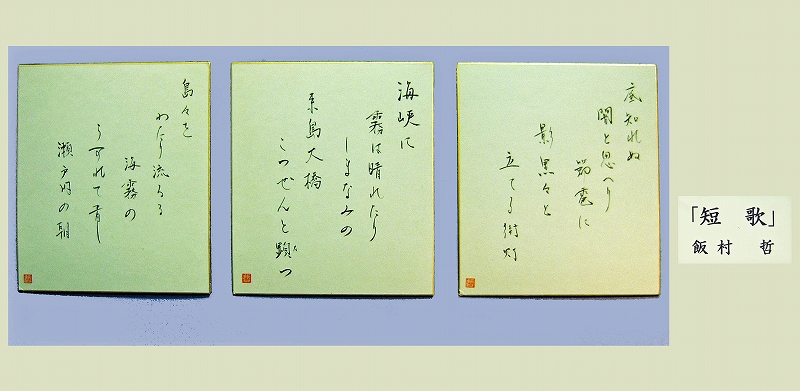 「短　歌」
飯村　哲
底知れぬ
闇と思へり
節電に
影黒々と
立てる街灯
海峡に
霧は晴れたり
しまなみの
来島大橋
こつぜんと顕つ
島々を
わたり流るる
海霧の
うすれて青し
瀬戸内の朝